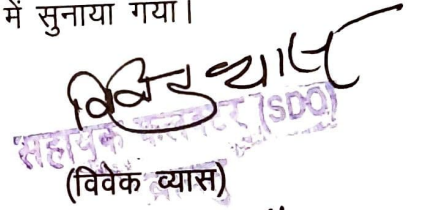 में सुनाया गया।
विवेक व्यास
सहायक कलक्टर (SDO)
(विवेक व्यास)